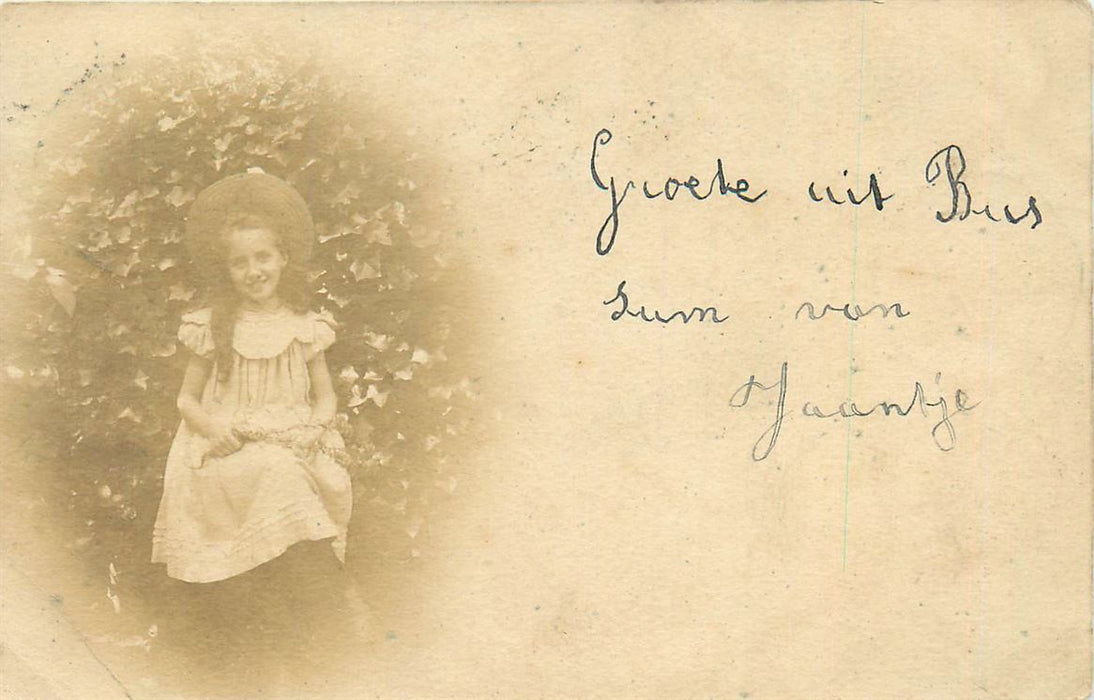 Groete uit Bus
sum van
Jaantje